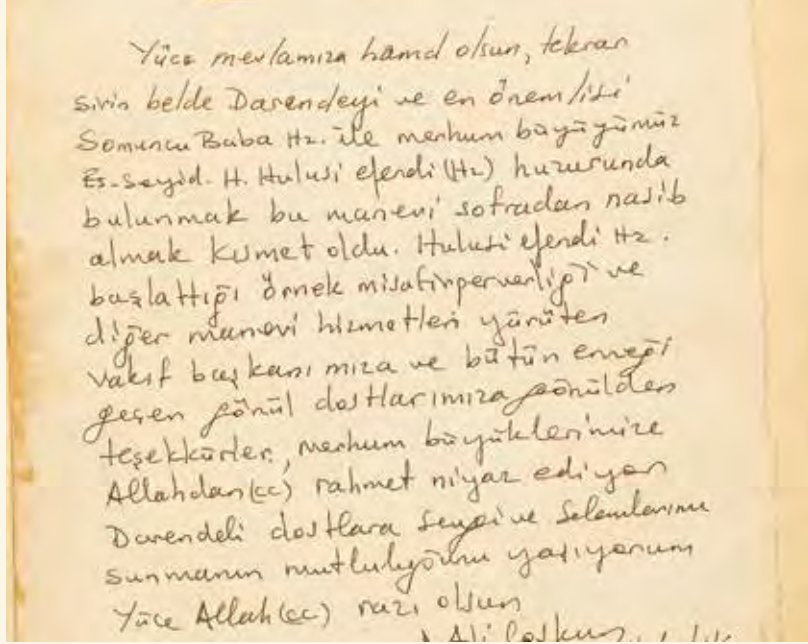 Yüce mevlamıza hamd olsun, tekrar
şirin belde Darendeyi ve en önemlisi
Somuncu Baba Hz. ile merhum büyüğümüz
Es-Seyid. H. Hulusi efendi (Hz) huzurunda
bulunmak bu manevi sofradan nasib
almak kısmet oldu. Hulusi efendi Hz.
başlattığı örnek misafirperverliği ve
diğer manevi hizmetleri yürüten
vakıf başkanımıza ve bütün emeği
geçen gönül dostlarımıza gönülden
teşekkürler, merhum büyüklerimize
Allahdan (cc) rahmet niyaz ediyor
Darendeli dostlara sevgi ve selamlarımı
sunmanın mutluluğunu yaşıyorum
Yüce Allah (cc) razı olsun
Ali Coşkun